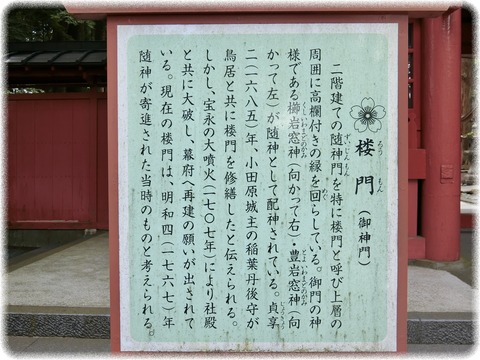 楼門（御神門）
ろうもん
二階建ての随神門を特に楼門と呼び上層の
ずいじんもん
周囲に高欄付きの縁を回らしている。御門の神
めぐ
様である櫛岩窓神（向かって右）・豊岩窓神（向
くしいわまどのかみ
とよいわまどのかみ
かって左）が随神として配神されている。貞享
じょうきょう
二（一六八五）年、小田原城主の稲葉丹後守が
鳥居と共に楼門を修繕したと伝えられる。
しかし、宝永の大噴火（一七〇七年）により社殿
と共に大破し、幕府へ再建の願いが出されて
いる。現在の楼門は、明和四（一七六七）年
随神が寄進された当時のものと考えられる。